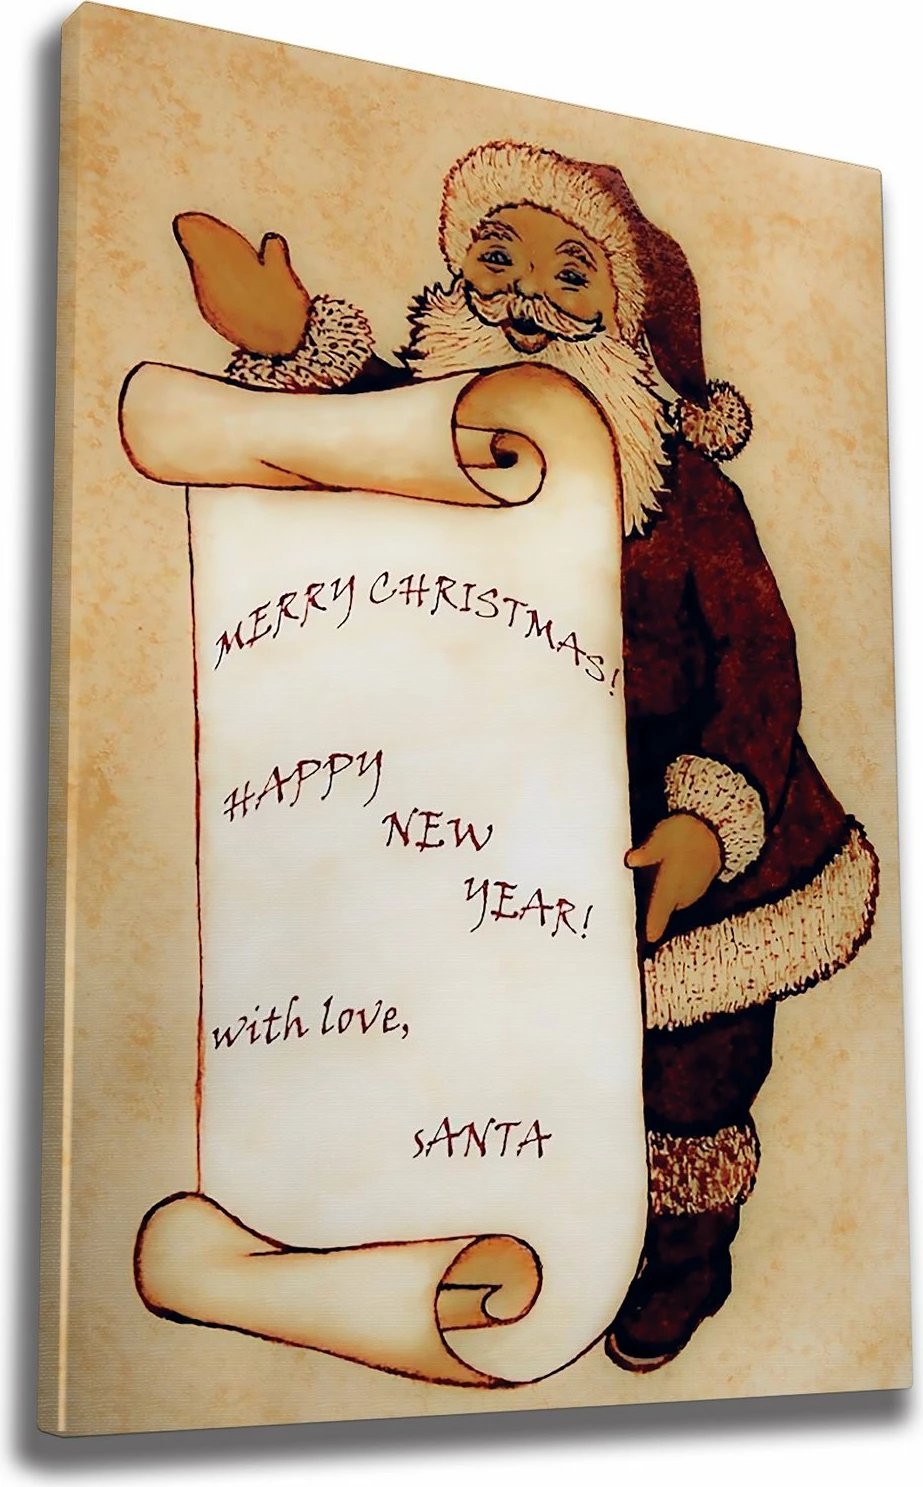 MERRY CHRISTMAS!
HAPPY
NEW
YEAR!
with love,
SANTA